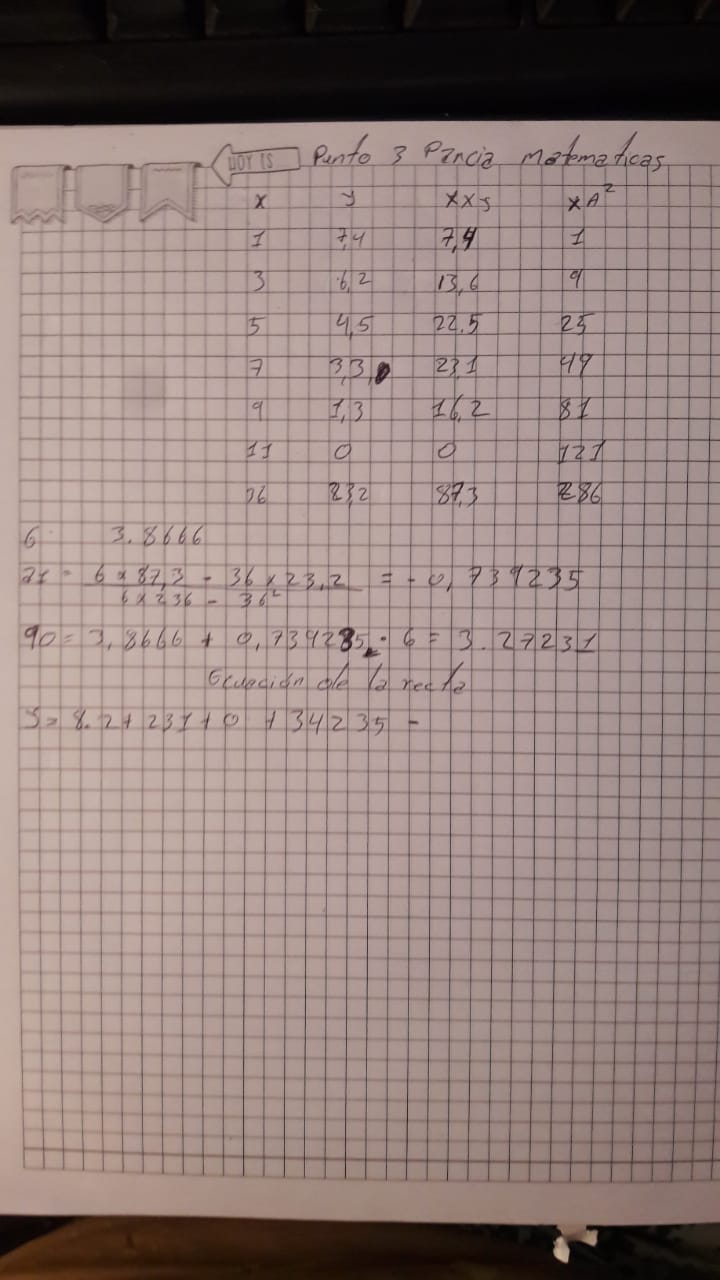 UOY IS Punto 3 Parcia matematicas
x y x x y x A²
1 7,4 7,4 1
3 6,2 13,6 9
5 4,5 22.5 25
7 3,3, 231 49
9 1,3 16,2 81
11 0 0 121
36 23,2 87,3 286
6 3.8666
a1 = 6 x 87,3 - 36 x 23,2 = - 0,739235
6 x 236 - 36²
90 = 3,8666 + 0,739235 . 6 = 3.27231
Ecuación de la recta
y = 8.2 + 231 + 0 + 34235 -